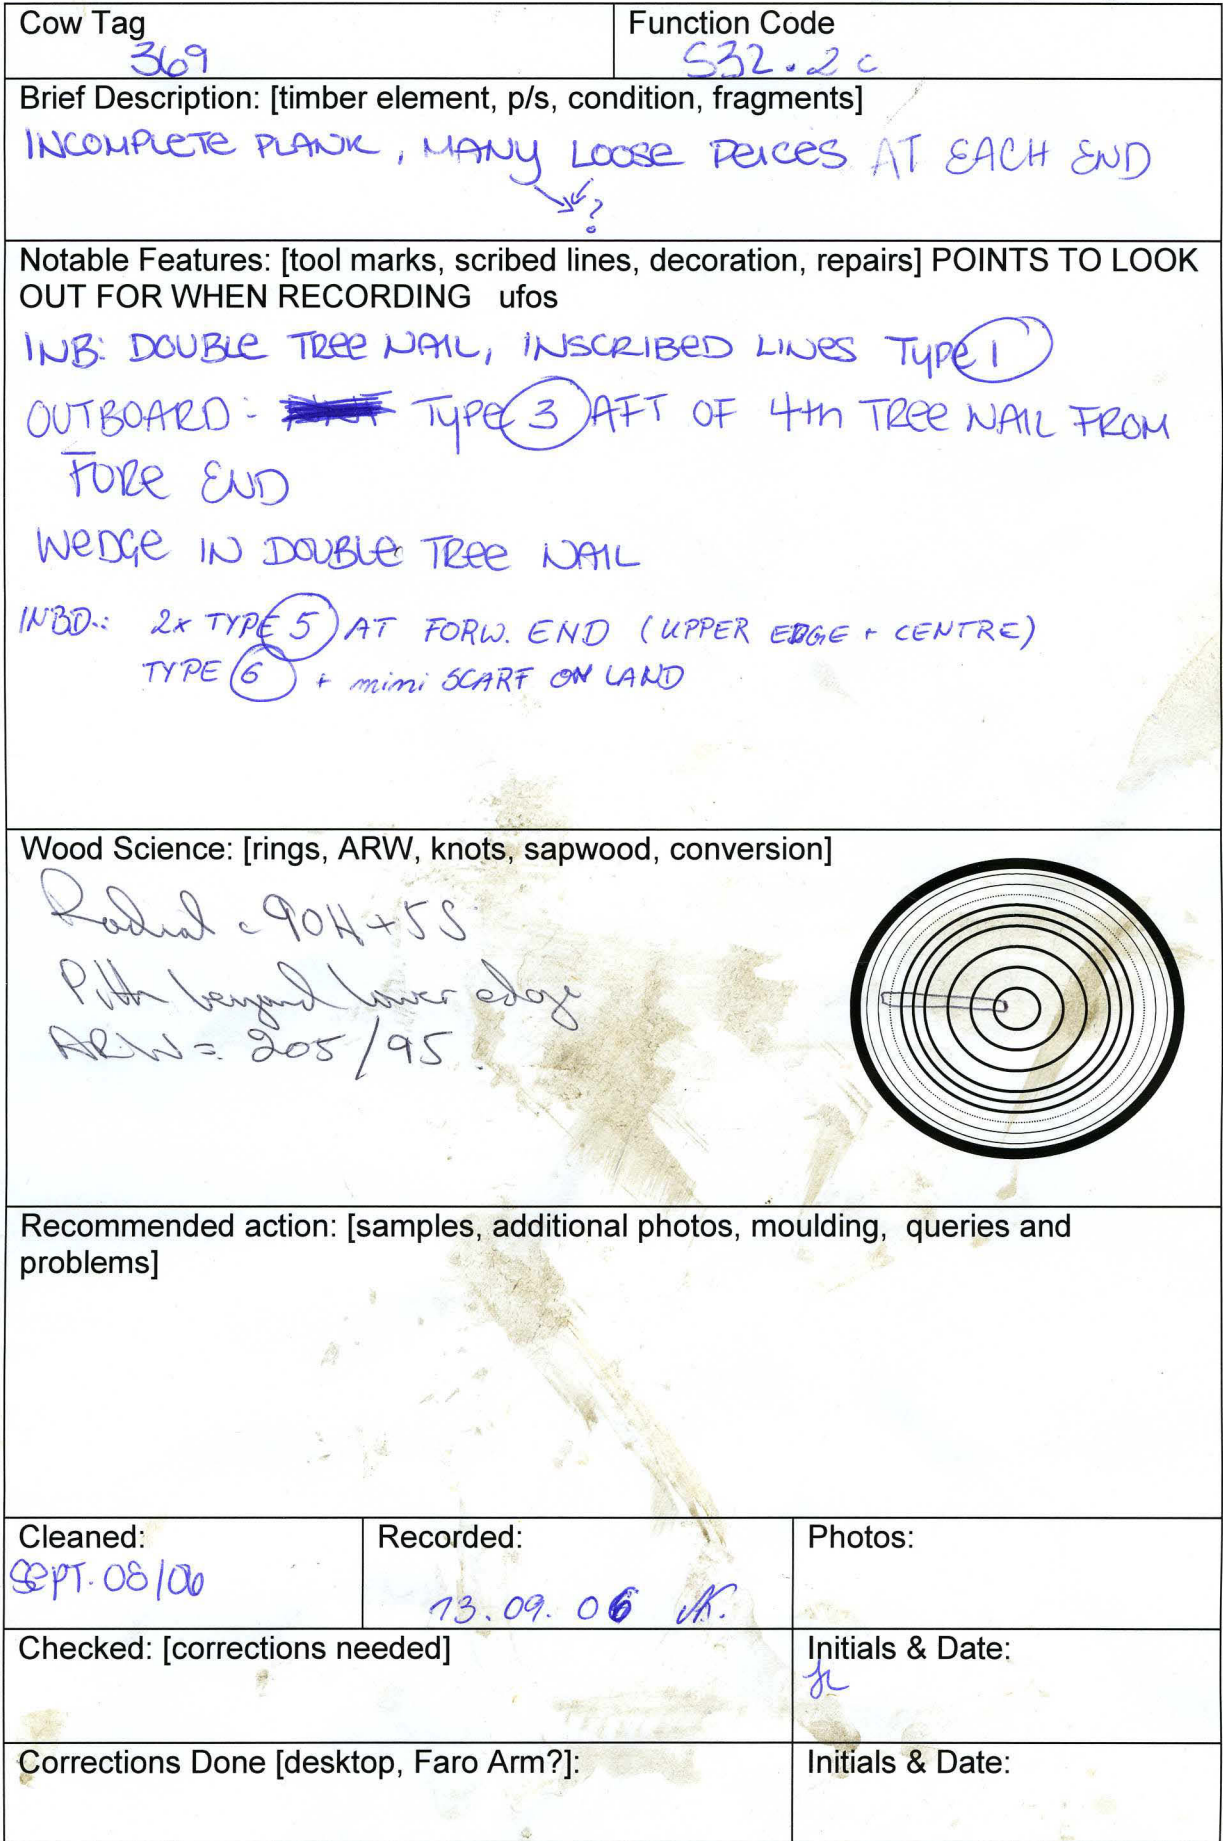 Cow Tag
369
Function Code
S32.2c
Brief Description: [timber element, p/s, condition, fragments]
INCOMPLETE PLANK, MANY LOOSE PEICES AT EACH END
?
Notable Features: [tool marks, scribed lines, decoration, repairs] POINTS TO LOOK
OUT FOR WHEN RECORDING ufos
INB: DOUBLE TREE NAIL, INSCRIBED LINES TYPE 1
OUTBOARD: TYPE 3 AFT OF 4th TREE NAIL FROM
FORE END
WEDGE IN DOUBLE TREE NAIL
INBD.: 2x TYPE 5 AT FORW. END (UPPER EDGE + CENTRE)
TYPE 6 + mini SCARF ON LAND
Wood Science: [rings, ARW, knots, sapwood, conversion]
Radial c 90H+5S
Pith beyond lower edge
ARW = 205/95
Recommended action: [samples, additional photos, moulding, queries and
problems]
Cleaned:
SEPT. 08/06
Recorded:
13.09.06
Photos:
Checked: [corrections needed]
Initials & Date:
Corrections Done [desktop, Faro Arm?]:
Initials & Date: